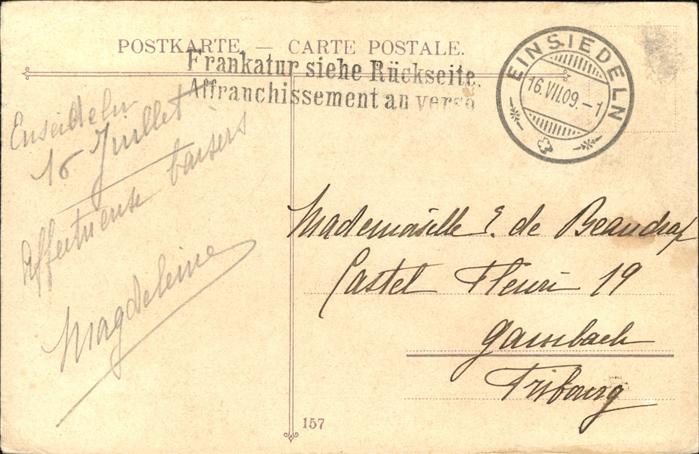 POSTKARTE. — CARTE POSTALE.
Frankatur siehe Rückseite.
Affranchissement au verso
EINSIEDELN
16.VII.09.-1
Enseideln
16 Juillet
Affectueux baisers
Magdeleine
Mademoiselle E. de Beaudrap
Castel Fleuri 19
Gambach
Fribourg
157